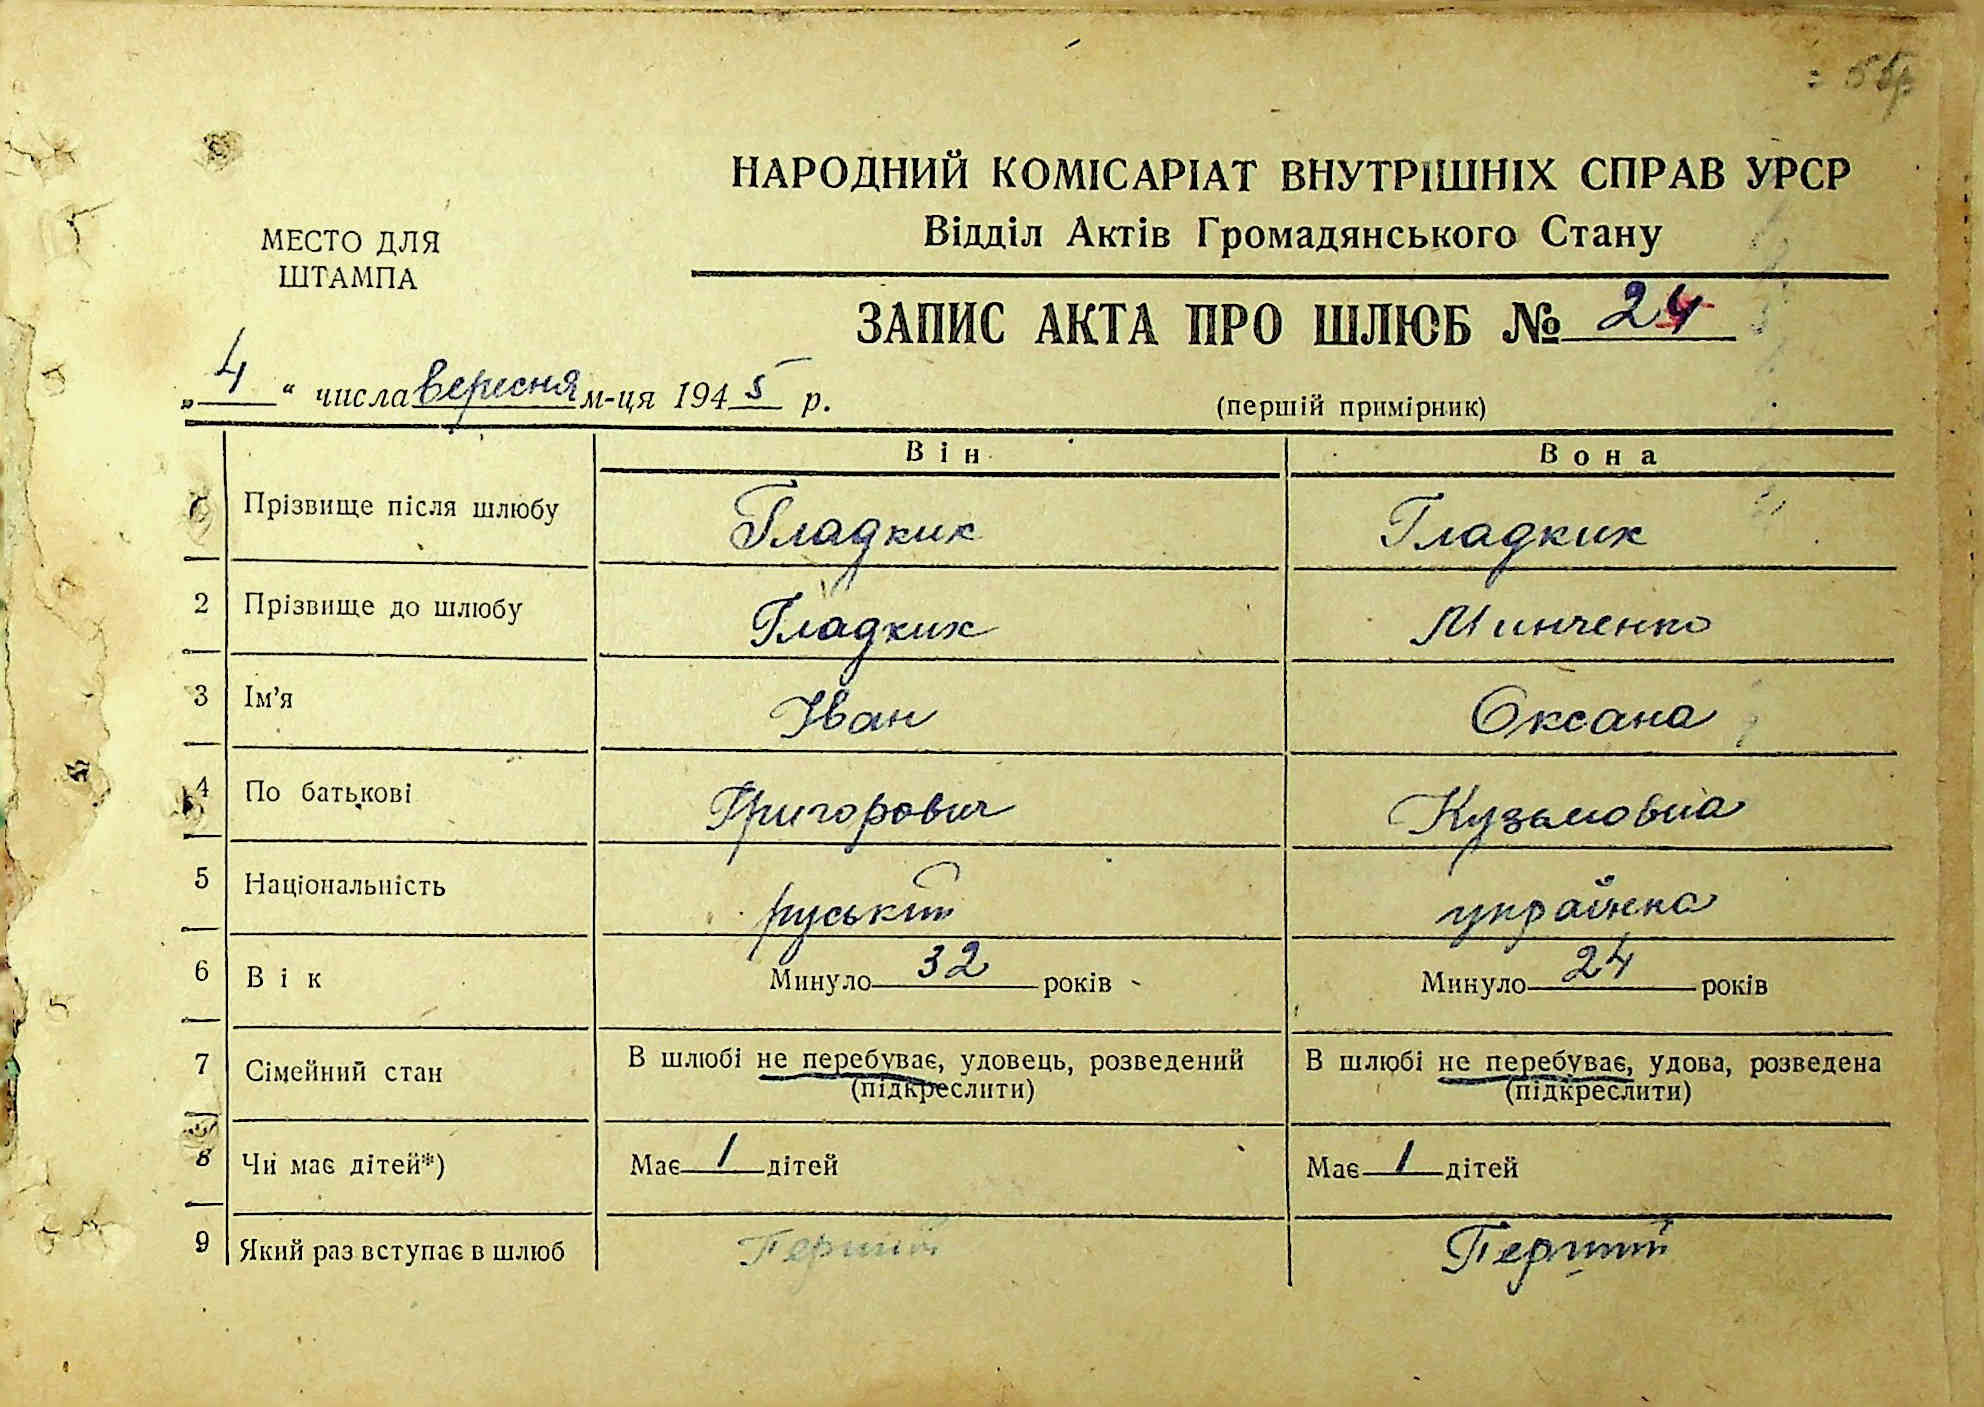 НАРОДНИЙ КОМІСАРІАТ ВНУТРІШНІХ СПРАВ УРСР
Відділ Актів Громадянського Стану
МЕСТО ДЛЯ
ШТАМПА
ЗАПИС АКТА ПРО ШЛЮБ № 24
„4“ числа вересня м-ця 1945 р.
(першій примірник)
Він Вона
Прізвище після шлюбу Гладких Гладких
2 Прізвище до шлюбу Гладких Минченко
3 Ім'я Іван Оксана
4 По батькові Григорович Кузьмовна
5 Національність руський українка
6 Вік Минуло 32 років Минуло 24 років
7 Сімейний стан В шлюбі не перебуває, удовець, розведений В шлюбі не перебуває, удова, розведена
(підкреслити) (підкреслити)
8 Чи має дітей*) Має 1 дітей Має 1 дітей
9 Який раз вступає в шлюб Перший Перший